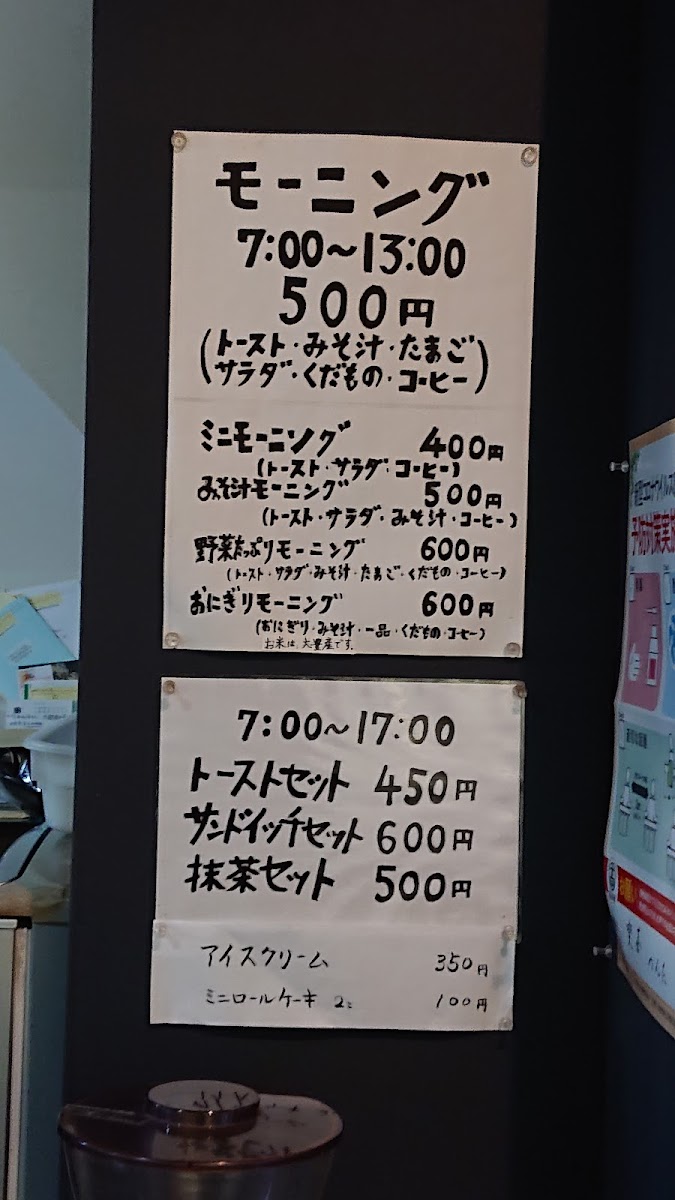 モーニング
7:00～13:00
500円
(トースト・みそ汁・たまご
サラダ・くだもの・コーヒー)
ミニモーニング 400円
(トースト・サラダ・コーヒー)
みそ汁モーニング 500円
(トースト・サラダ・みそ汁・コーヒー)
野菜たっぷりモーニング 600円
(トースト・サラダ・みそ汁・たまご・くだもの・コーヒー)
おにぎりモーニング 600円
(おにぎり・みそ汁・一品・くだもの・コーヒー)
お米は大豊産です。
7:00～17:00
トーストセット 450円
サンドイッチセット 600円
抹茶セット 500円
アイスクリーム 350円
ミニロールケーキ 2コ 100円
予防対策実施